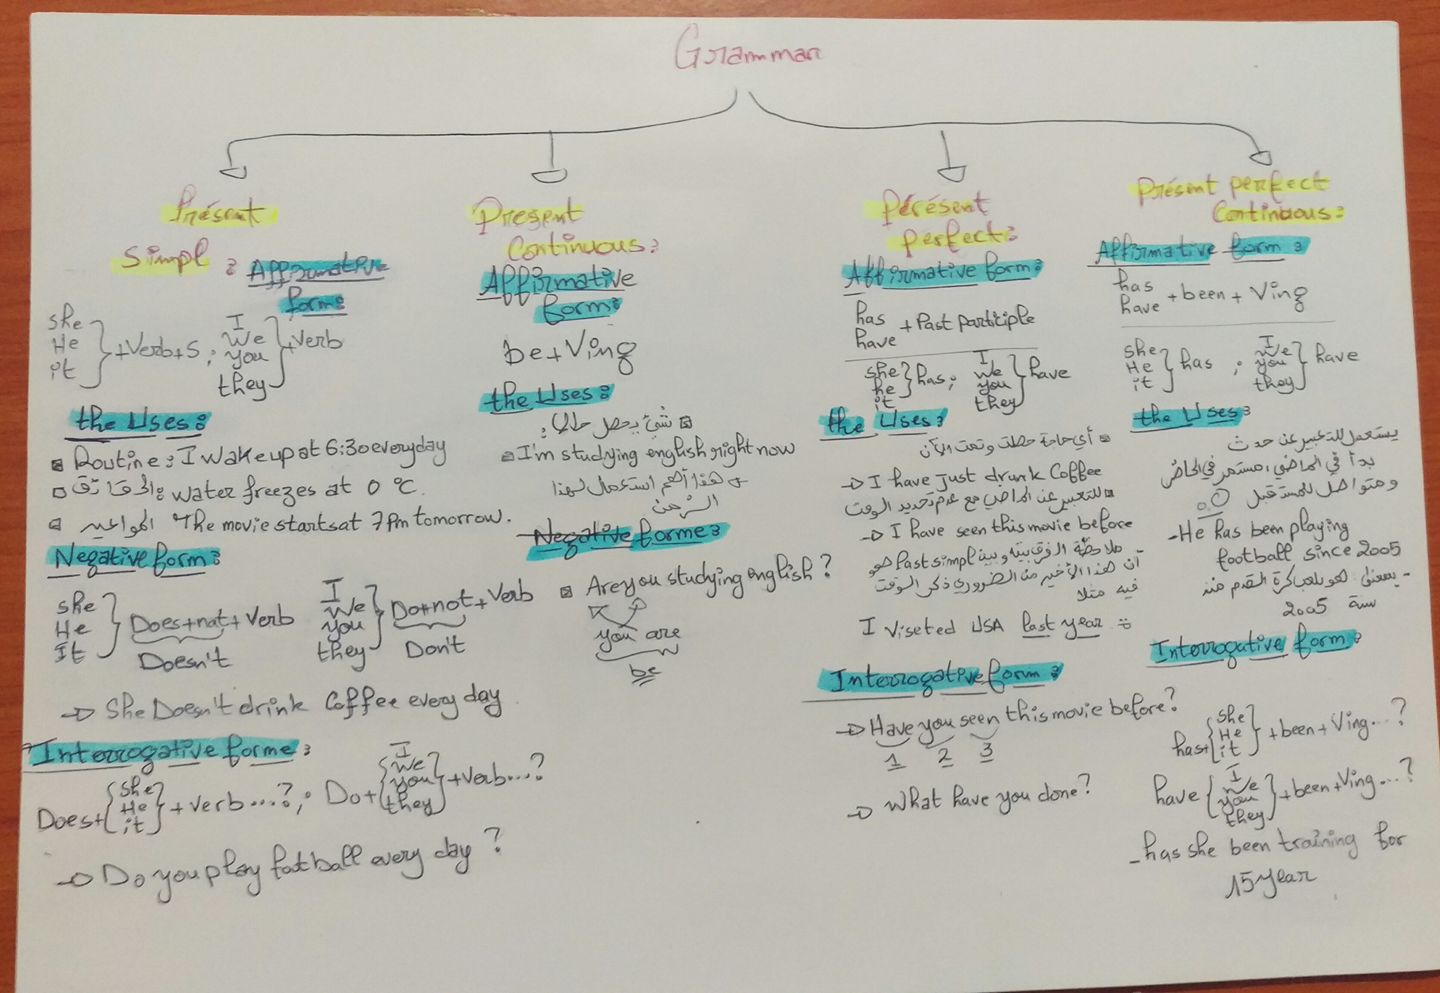 Grammar
Présent
Simpl : Affirmative
form:
she
He
it
+Verb+S ;
I
We
you
they
+verb
the Uses:
Routine : I wake up at 6:30 everyday
الحقائق: water freezes at 0 °C.
المواعيد The movie starts at 7 Pm tomorrow.
Negative form:
she
He
It
Does+not+Verb
Doesn't
I
We
you
they
Do+not+Verb
Don't
She Doesn't drink Coffee every day
Interrogative forme:
Does+
she
He
it
+verb...? ;
Do+
I
We
you
they
+verb...?
Do you play football every day ?
Present
Continuous:
Affirmative
form:
be+Ving
the Uses:
شيء يحصل حاليا:
I'm studying english right now
هذا أهم استعمال لهذا
الزمن
Negative forme:
Are you studying english ?
you are
be
Présént
perfect:
Affirmative form:
has
have
+ Past participle
she
he
it
has;
I
We
you
they
have
the Uses:
أي حاجة حصلت وتمت الآن
I have Just drunk Coffee
للتعبير عن الماضي مع عدم تحديد الوقت
I have seen this movie before
ملاحظة الفرق بينه وبين Past simpl هو
أن هذا الأخير من الضروري ذكر الوقت
فيه مثلا
I viseted USA last year
Interrogative form:
Have you seen this movie before?
1 2 3
What have you done?
Présent perfect
Continuous:
Affirmative form:
has
have
+ been + Ving
she
He
it
has ;
I
We
you
they
have
the Uses:
يستعمل للتعبير عن حدث
بدأ في الماضي، مستمر في الحاضر
ومتواصل للمستقبل
-He has been playing
football since 2005
- بمعنى هو يلعب كرة القدم منذ
سنة 2005
Interrogative form:
has+
she
He
it
+been+Ving...?
have
I
We
you
they
+been+Ving...?
-has she been training for
15 year